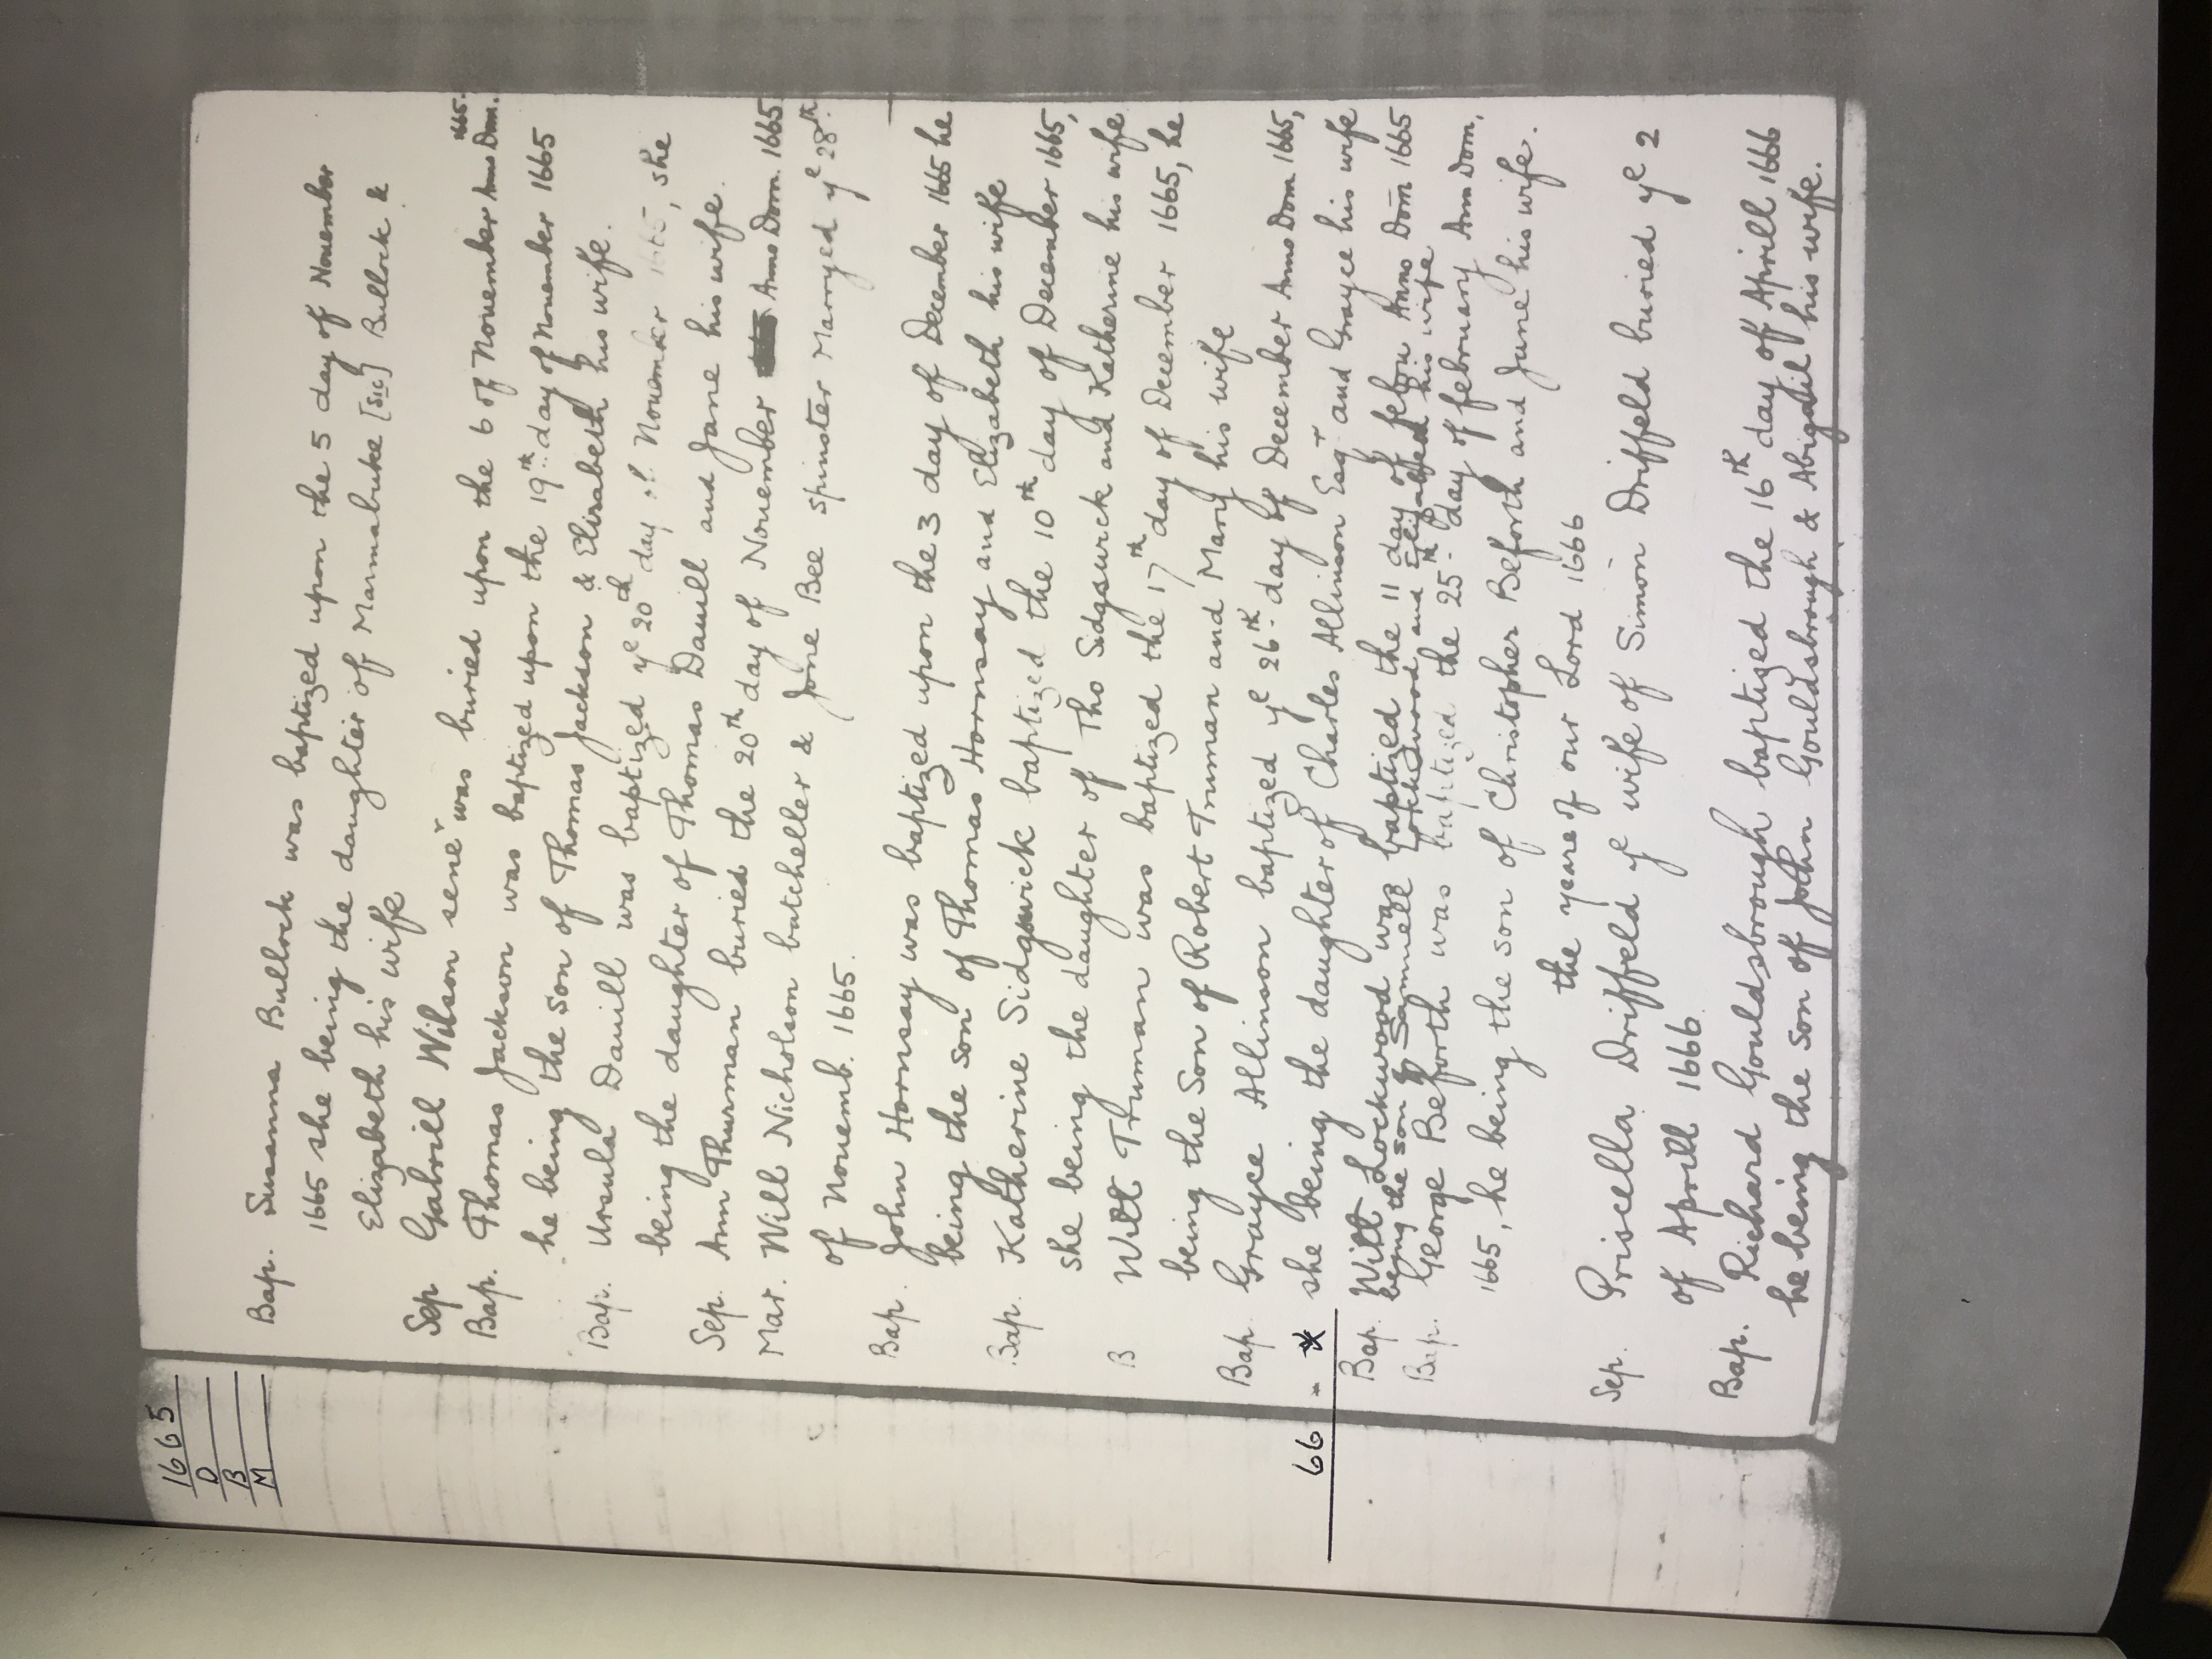 1665
D
B
M
Bap. Susanna Bullock was baptized upon the 5 day of November
1665 she being the daughter of Marmabuke [sic] Bullock &
Elizabeth his wife
Sep Gabrill Wilson sener was buried upon the 6 of November Anno Dom. 1665.
Bap. Thomas Jackson was baptized upon the 19th day of November 1665
he being the son of Thomas Jackson & Elisabeth his wife.
Bap. Ursula Dauill was baptized ye 20th day of Nouember 1665, she
being the daughter of Thomas Dauill and Jane his wife.
Sep. Ann Thurman buried the 20th day of Nouember Anno Dom. 1665
Mar. Will Nicholson batcheller & Jone Bee spinster Marryed ye 28th
of Nouemb. 1665.
Bap. John Hornsay was baptized upon the 3 day of December 1665 he
being the son of Thomas Hornsay and Elizabeth his wife
Bap. Katherine Sidgswick baptized the 10th day of December 1665,
she being the daughter of Tho Sidgswick and Katherine his wife
B Will Truman was baptized the 17th day of December 1665, he
being the Son of Robert Truman and Mary his wife
Bap. Grayce Allinson baptized ye 26th day of December Anno Dom 1665,
she being the daughter of Charles Allinson Esqr and Grayce his wife
66 - *
Bap. Will Lockwood was baptized the 11 day of febru Anno Dom 1665
being the son of Sammuell Lockwood and Elizabeth his wife
Bap. George Beforth was baptized the 25th day of february Ann Dom,
1665, he being the son of Christopher Beforth and June his wife.
the yeare of our Lord 1666
Sep. Priscella Driffeld ye wife of Simon Driffeld buried ye 2
of Aprill 1666.
Bap. Richard Gouldsbrough baptized the 16th day of Aprill 1666
he being the son of John Gouldsbrough & Abigail his wife.